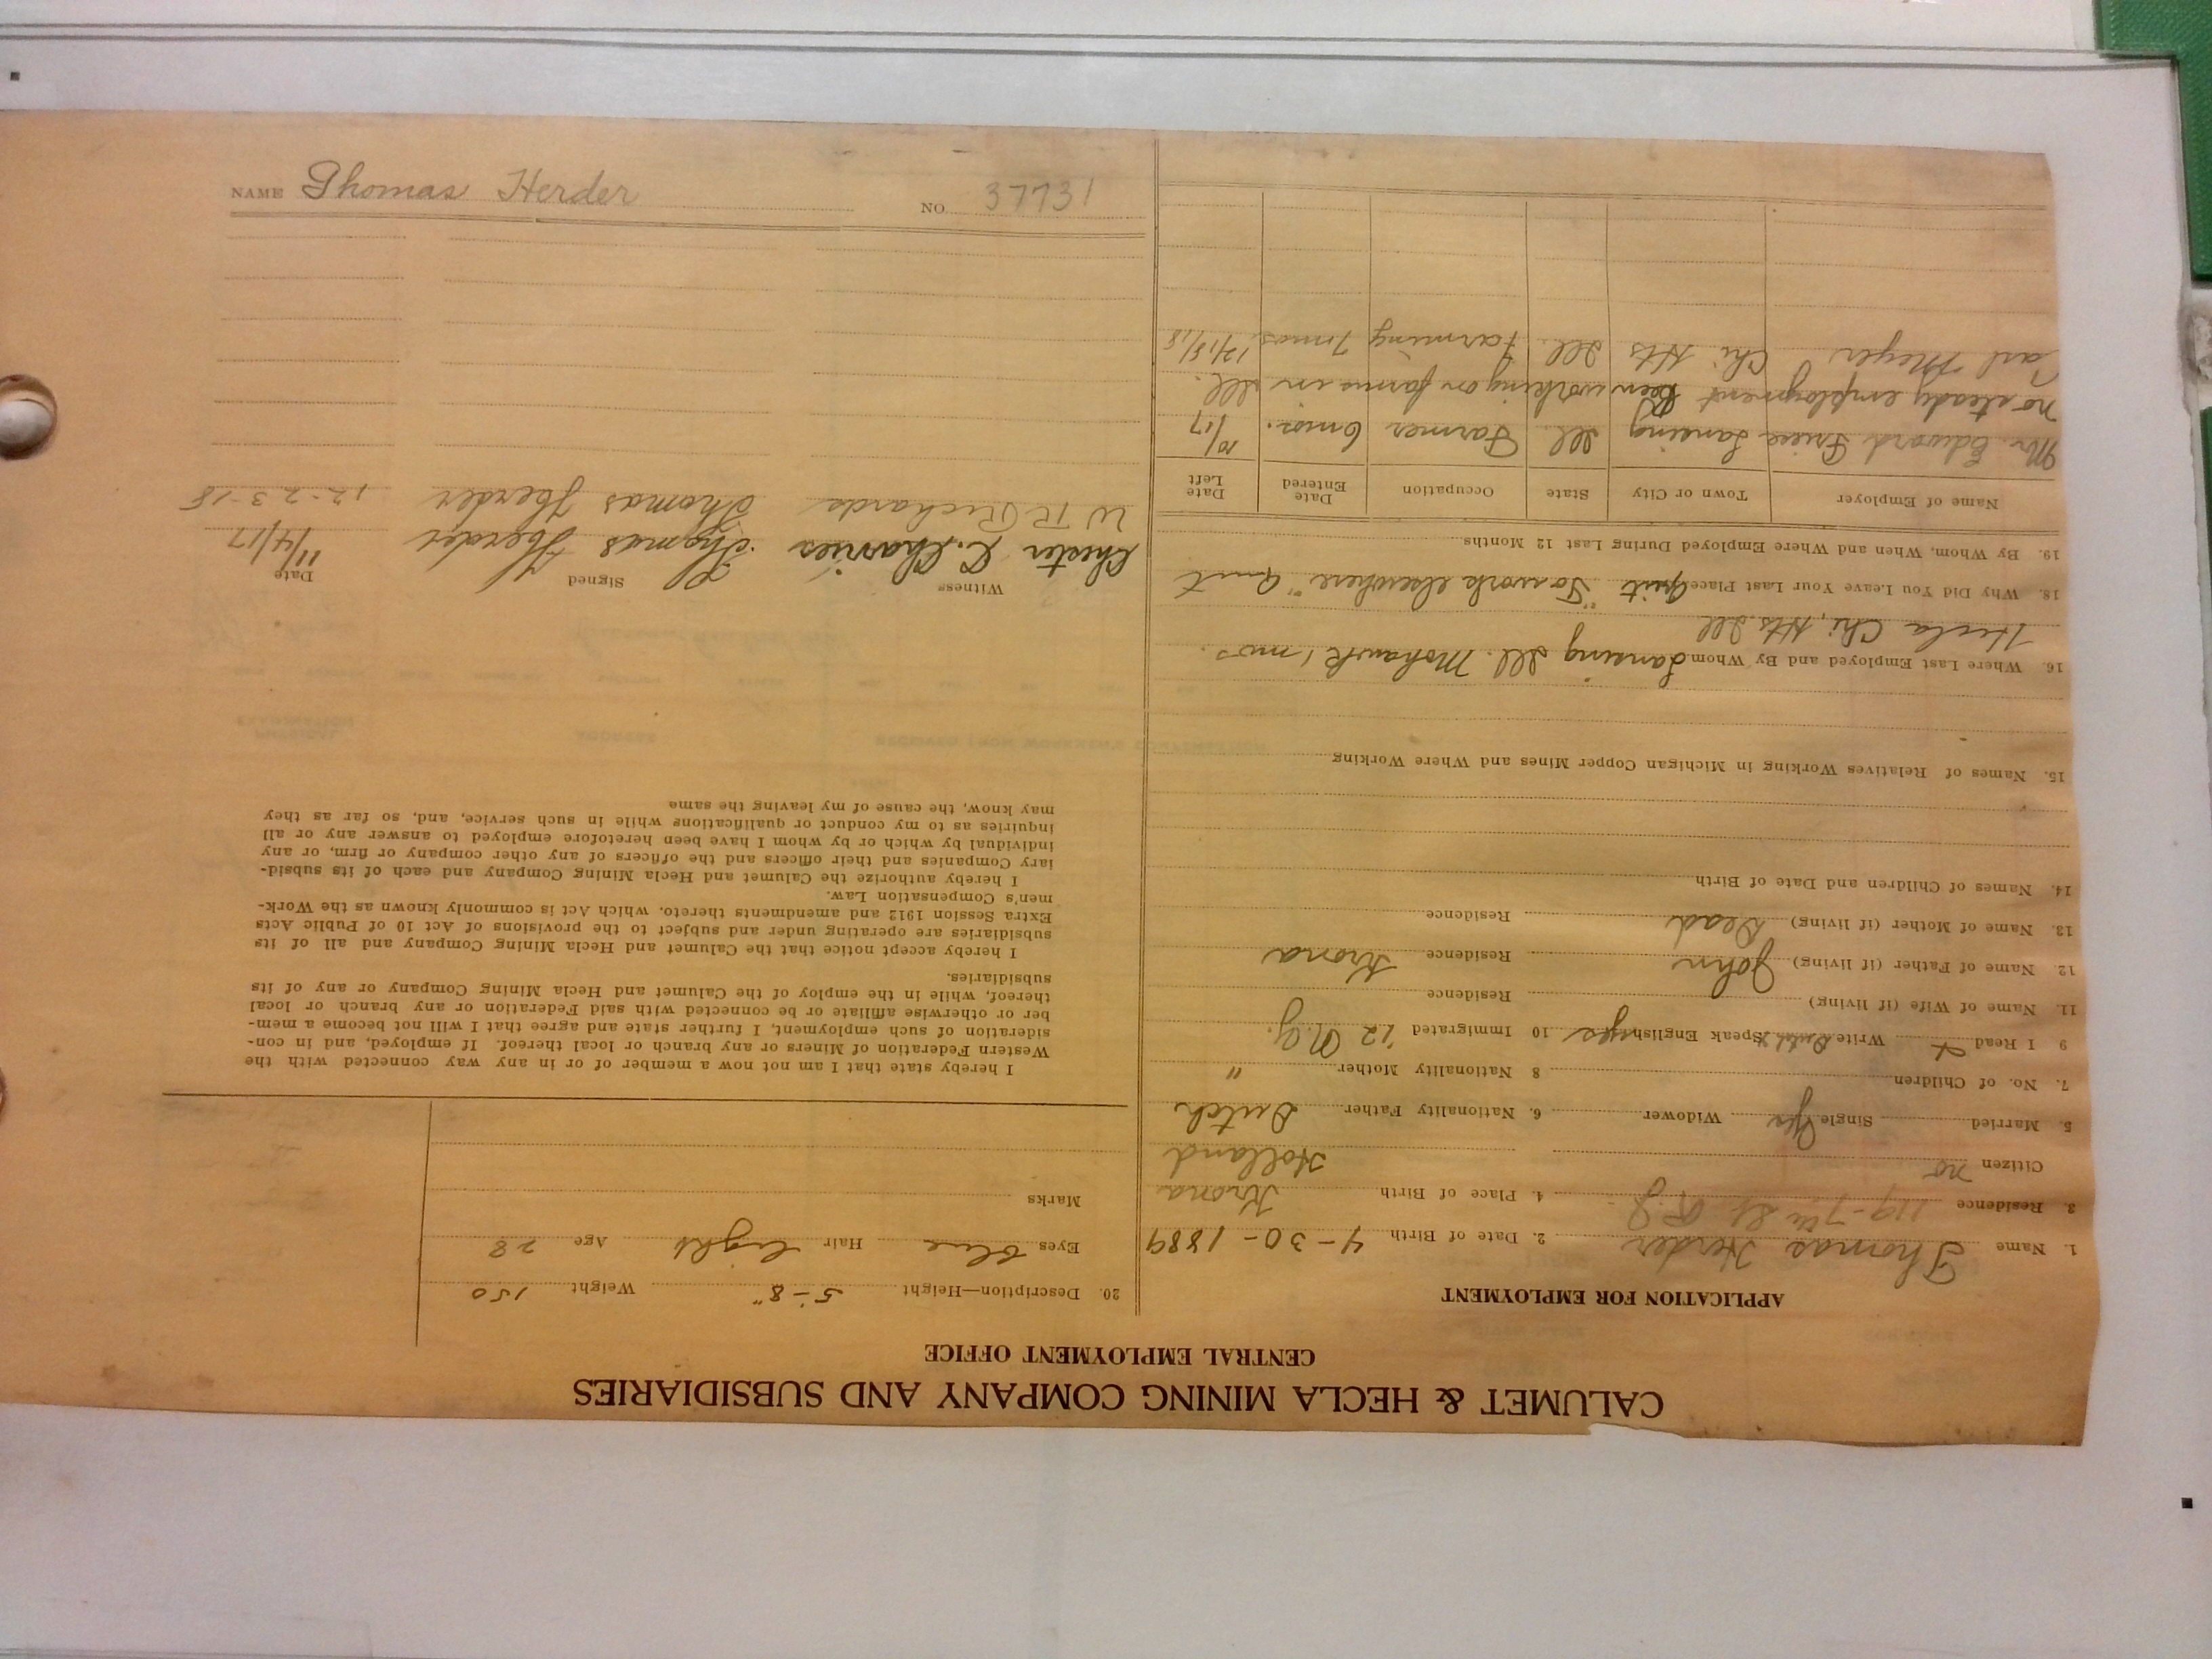 CALUMET & HECLA MINING COMPANY AND SUBSIDIARIES
CENTRAL EMPLOYMENT OFFICE
APPLICATION FOR EMPLOYMENT
1. Name Thomas Herder 2. Date of Birth 4-30-1889
3. Residence 119-7th St R.J. 4. Place of Birth Krona
Citizen no Holland
5. Married Single Yes Widower 6. Nationality Father Dutch
7. No. of Children 8 Nationality Mother "
9 I Read Write Dutch Speak English yes 10 Immigrated '12 N.Y.
11. Name of Wife (if living) Residence
12. Name of Father (if living) John Residence Krona
13. Name of Mother (if living) Dead Residence
14. Names of Children and Date of Birth
15. Names of Relatives Working in Michigan Copper Mines and Where Working
16. Where Last Employed and By Whom Lansing Ill. Mohawk 1 mos.
Hecla Chi, Hts. Ill
18. Why Did You Leave Your Last Place Quit "To work elsewhere" Quit
19. By Whom, When and Where Employed During Last 12 Months
Name of Employer Town or City State Occupation Date Entered Date Left
Mr. Edward Lansing Ill. Farmer 6 mos. 10/17
no steady employment been working on farms in Ill.
Carl Meyer Chi Hts Ill. Farming 7 mos. 12/18/18
20. Description—Height 5'-8" Weight 150
Eyes blue Hair light Age 28
Marks
I hereby state that I am not now a member of or in any way connected with the
Western Federation of Miners or any branch or local thereof. If employed, and in con-
sideration of such employment, I further state and agree that I will not become a mem-
ber or otherwise affiliate or be connected with said Federation or any branch or local
thereof, while in the employ of the Calumet and Hecla Mining Company or any of its
subsidiaries.
I hereby accept notice that the Calumet and Hecla Mining Company and all of its
subsidiaries are operating under and subject to the provisions of Act 10 of Public Acts
Extra Session 1912 and amendments thereto, which Act is commonly known as the Work-
men's Compensation Law.
I hereby authorize the Calumet and Hecla Mining Company and each of its subsid-
iary Companies and their officers and the officers of any other company or firm, or any
individual by which or by whom I have been heretofore employed to answer any or all
inquiries as to my conduct or qualifications while in such service, and, so far as they
may know, the cause of my leaving the same
Witness Signed Date
Chester Thomas Herder 11/4/17
W R Richards Thomas Herder 12-23-18
NAME Thomas Herder NO. 37731